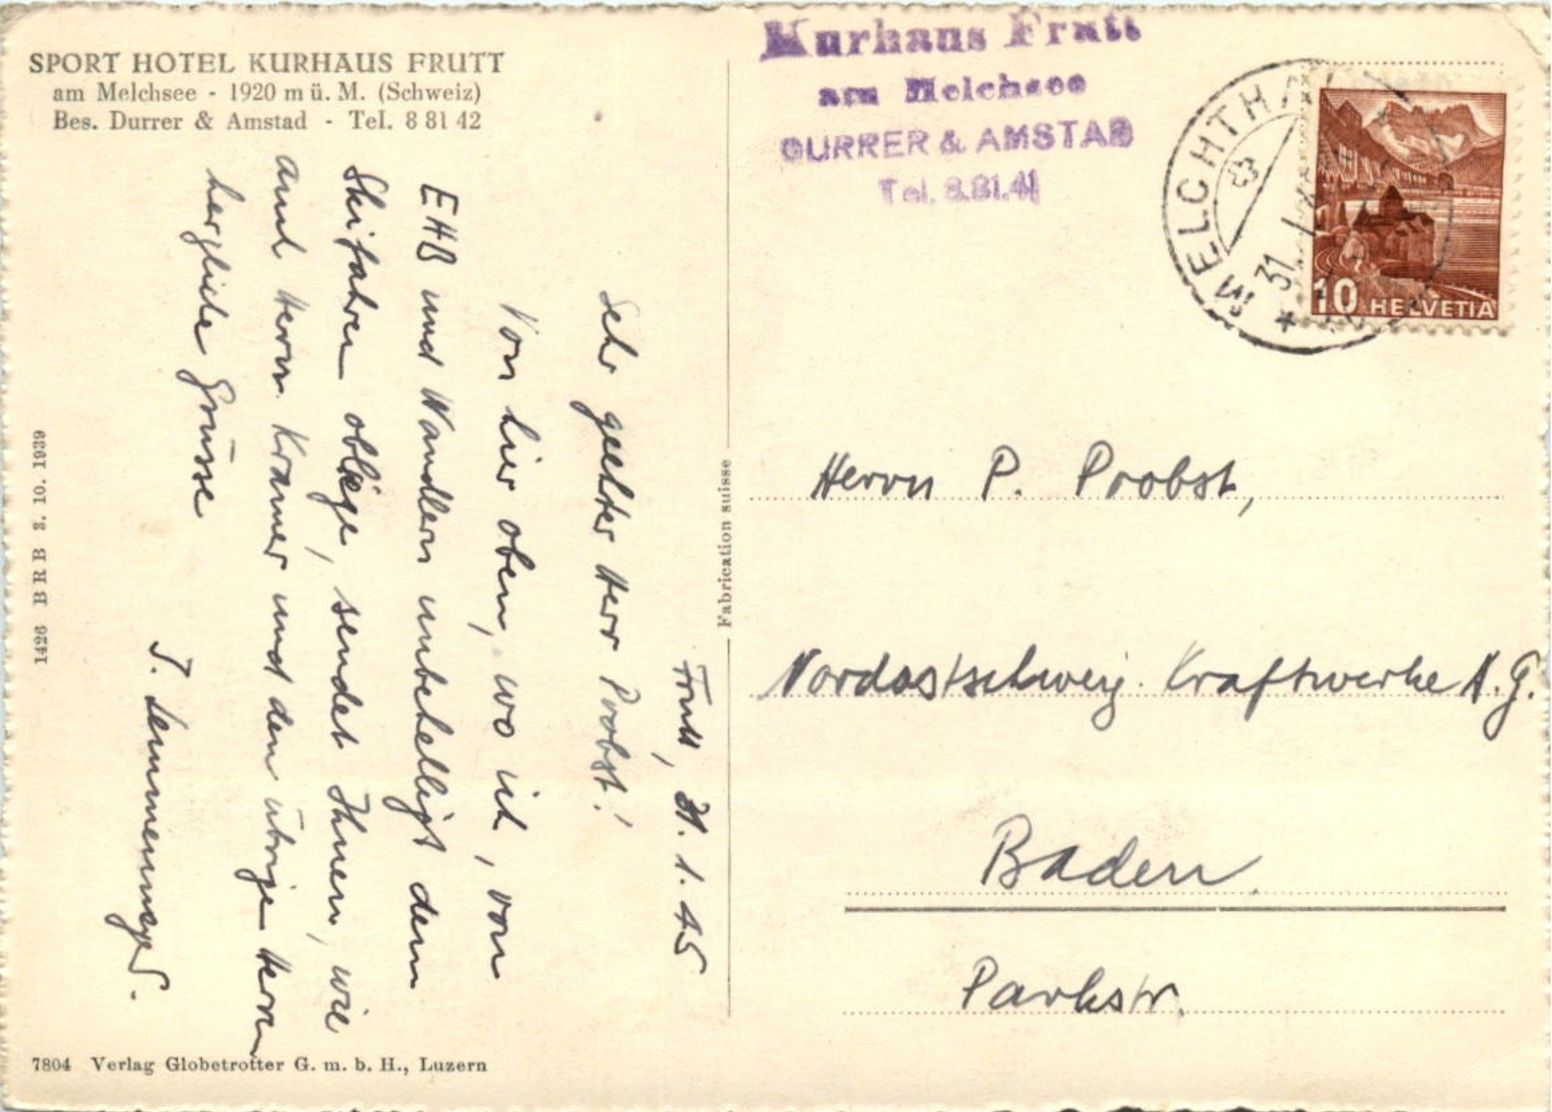 SPORT HOTEL KURHAUS FRUTT
am Melchsee - 1920 m ü. M. (Schweiz)
Bes. Durrer & Amstad - Tel. 8 81 42
Kurhaus Frutt
am Melchsee
DURRER & AMSTAD
Tel. 8.81.41
MELCHTHAL
31. I.
10 HELVETIA
Frutt, 31. 1. 45
Sehr geehrter Herr Probst!
Von hier oben, wo ich, von
EHB und Wandlern unbehelligt dem
Skifahren obliege, sendet Ihnen, wie
auch Herrn Kramer und den übrige Herren
herzliche Grüsse
Fabrication suisse
Herrn P. Probst,
Nordostschweiz. Kraftwerke A. G.
Baden
Parkstr.
1426 BRB 3. 10. 1939
7804 Verlag Globetrotter G. m. b. H., Luzern